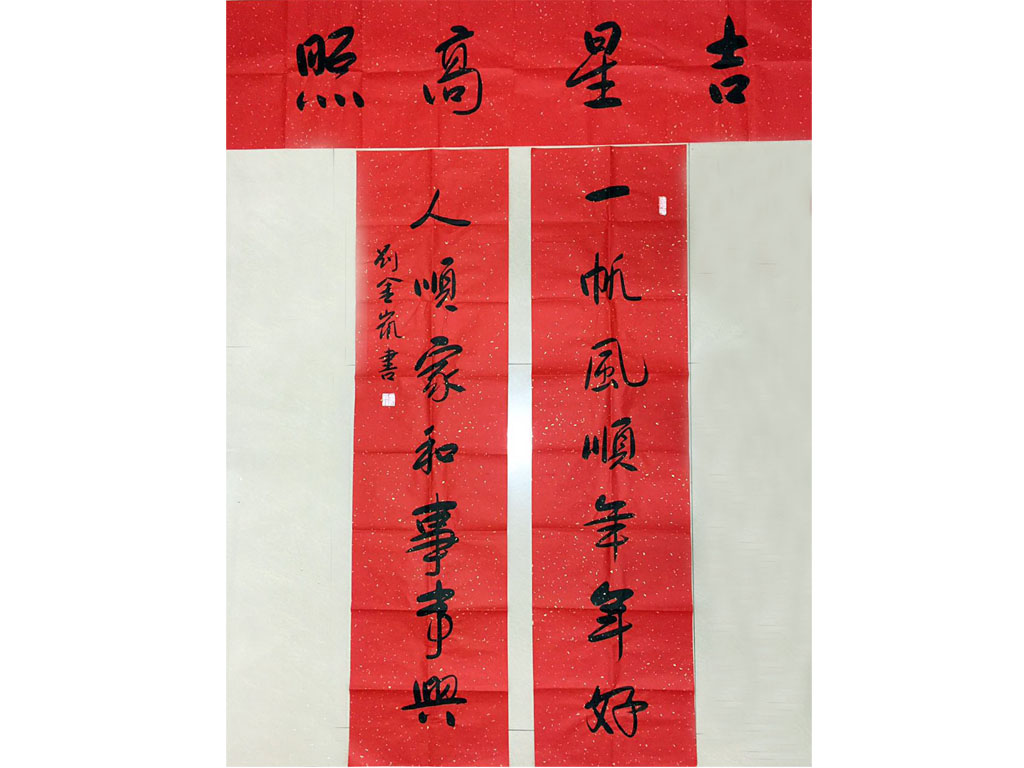 吉星高照
一帆風順年年好
人順家和事事興
劉金嵐書